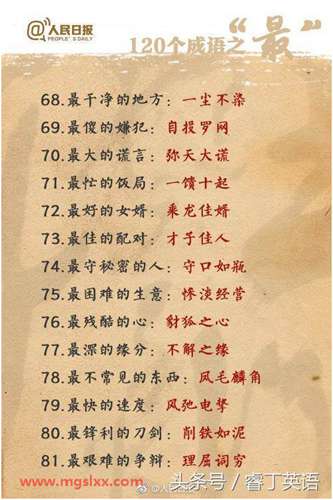 @人民日报
PEOPLE'S DAILY
120个成语之“最”
68.最干净的地方：一尘不染
69.最傻的嫌犯：自报罗网
70.最大的谎言：弥天大谎
71.最忙的饭局：一馈十起
72.最好的女婿：乘龙佳婿
73.最佳的配对：才子佳人
74.最守秘密的人：守口如瓶
75.最困难的生意：惨淡经营
76.最残酷的心：豺狐之心
77.最深的缘分：不解之缘
78.最不常见的东西：凤毛麟角
79.最快的速度：风驰电掣
80.最锋利的刀剑：削铁如泥
81.最艰难的争辩：理屈词穷
www.mgslxx.com
@人民日报
头条号／睿丁英语